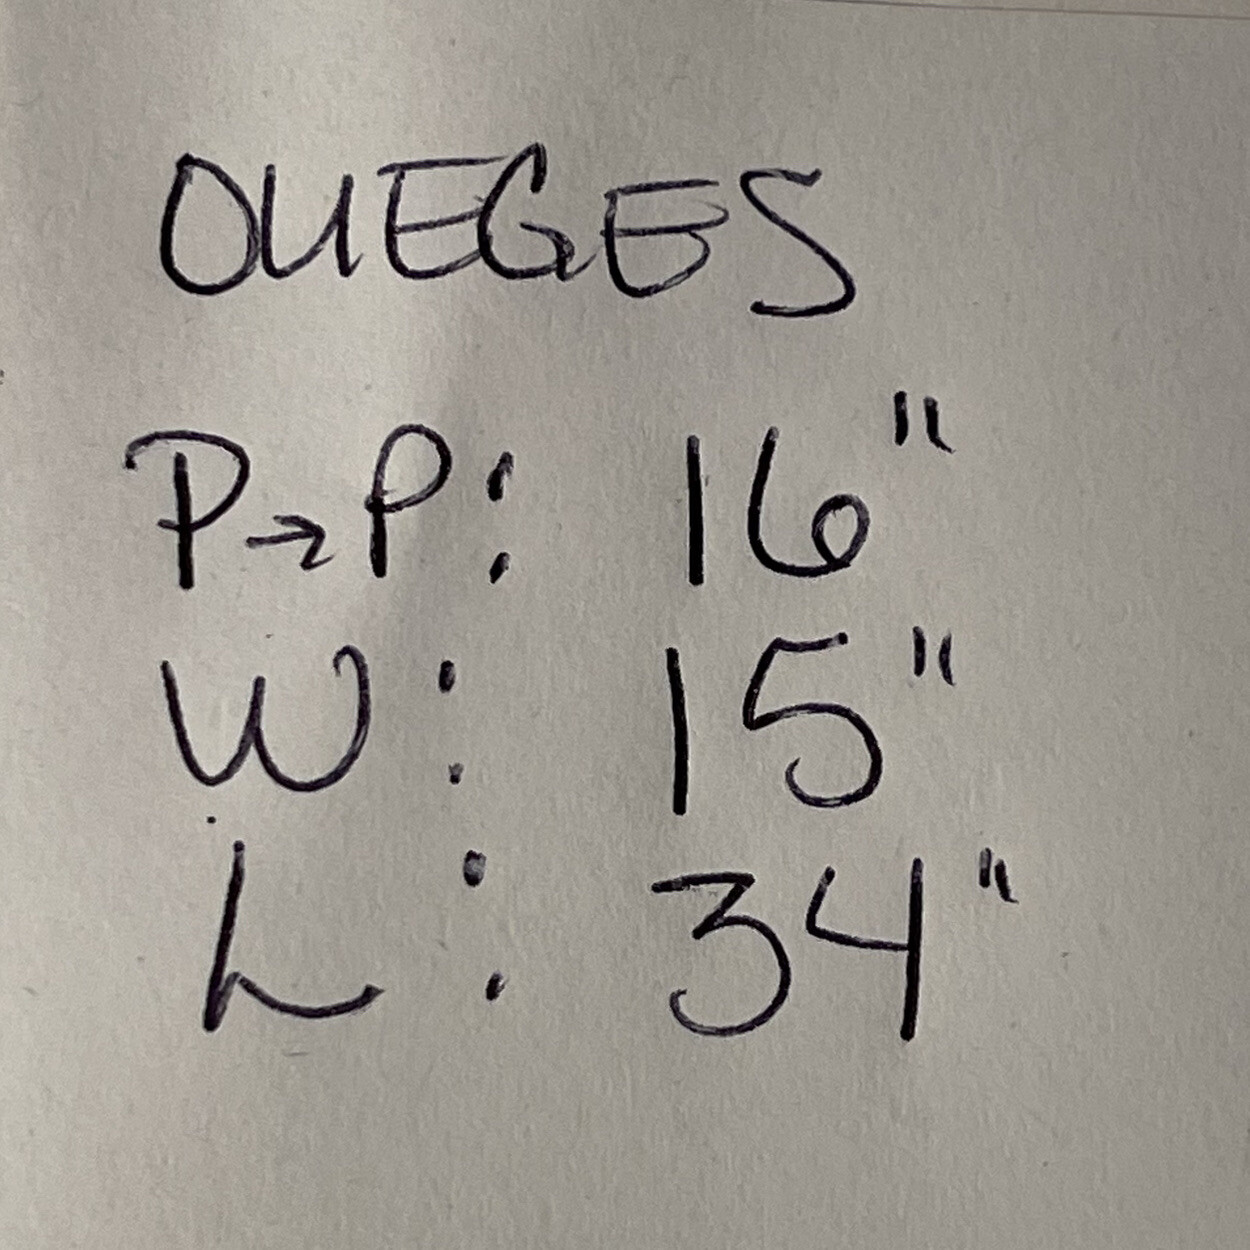 OUEGES
P→P: 16"
W: 15"
L: 34"